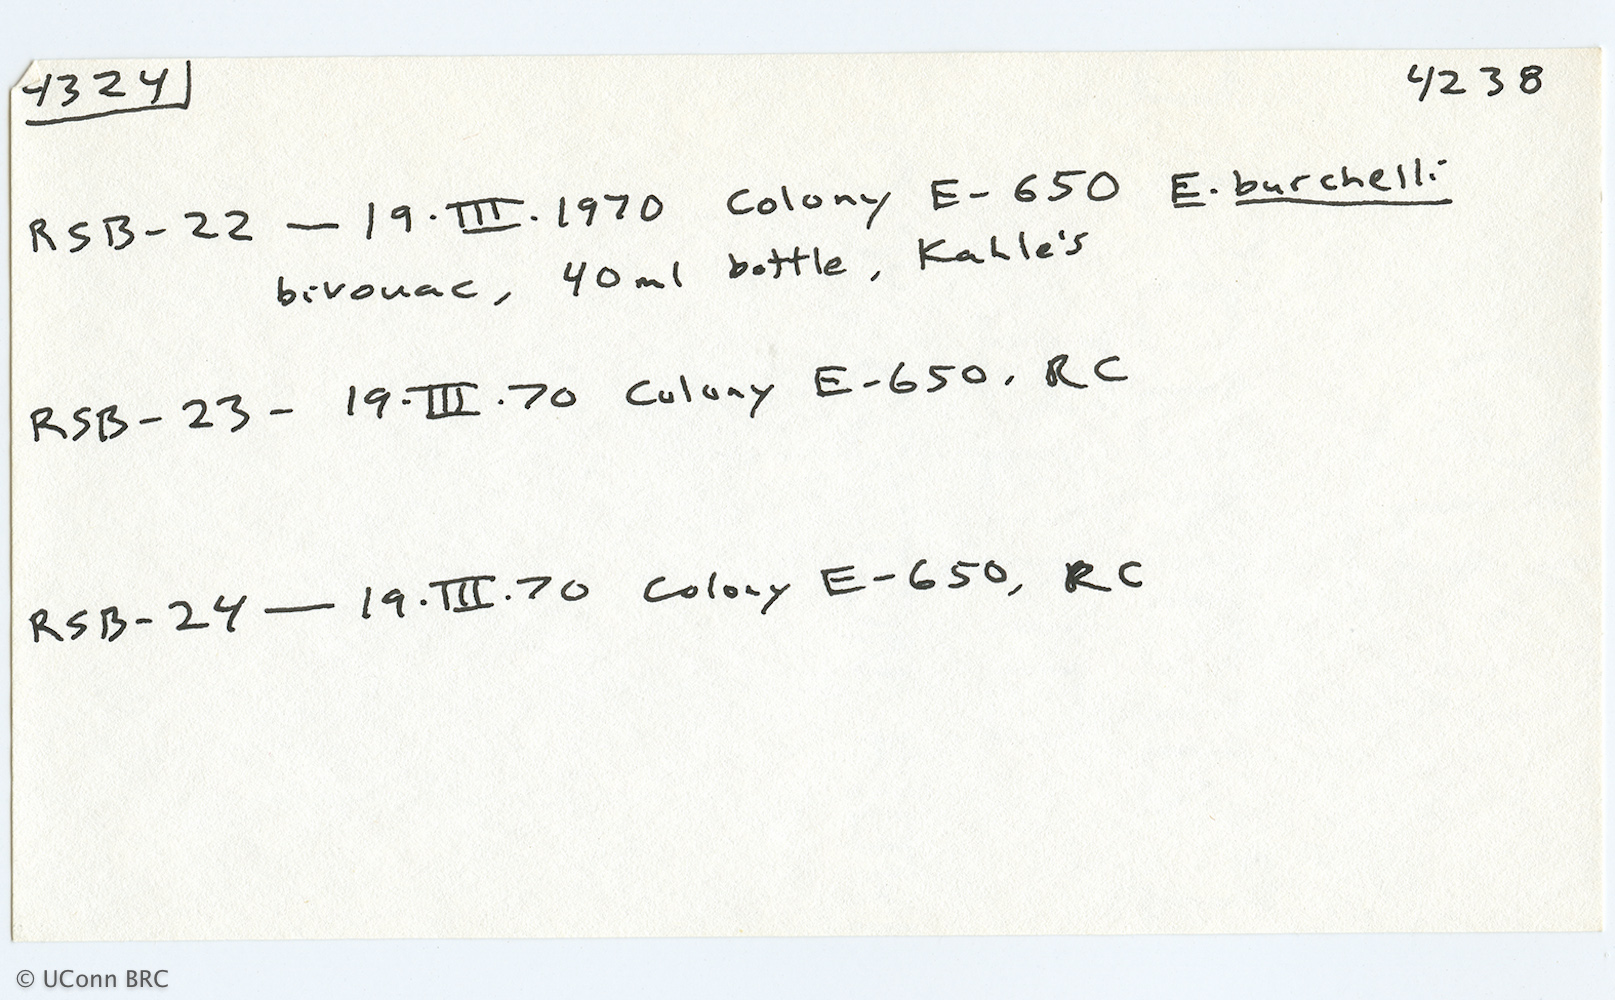 4324 4238
RSB-22 — 19.III.1970 Colony E-650 E. burchelli
bivouac, 40ml bottle, Kahle's
RSB-23 - 19.III.70 Colony E-650, RC
RSB-24 — 19.III.70 Colony E-650, RC
© UConn BRC